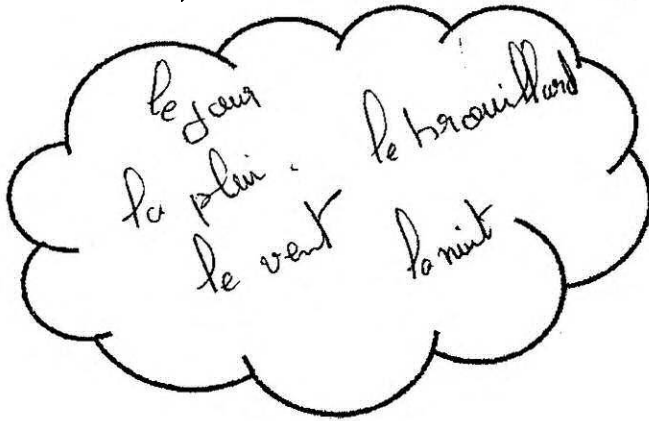 le jour
la plui. le brouillard
le vent la nuit